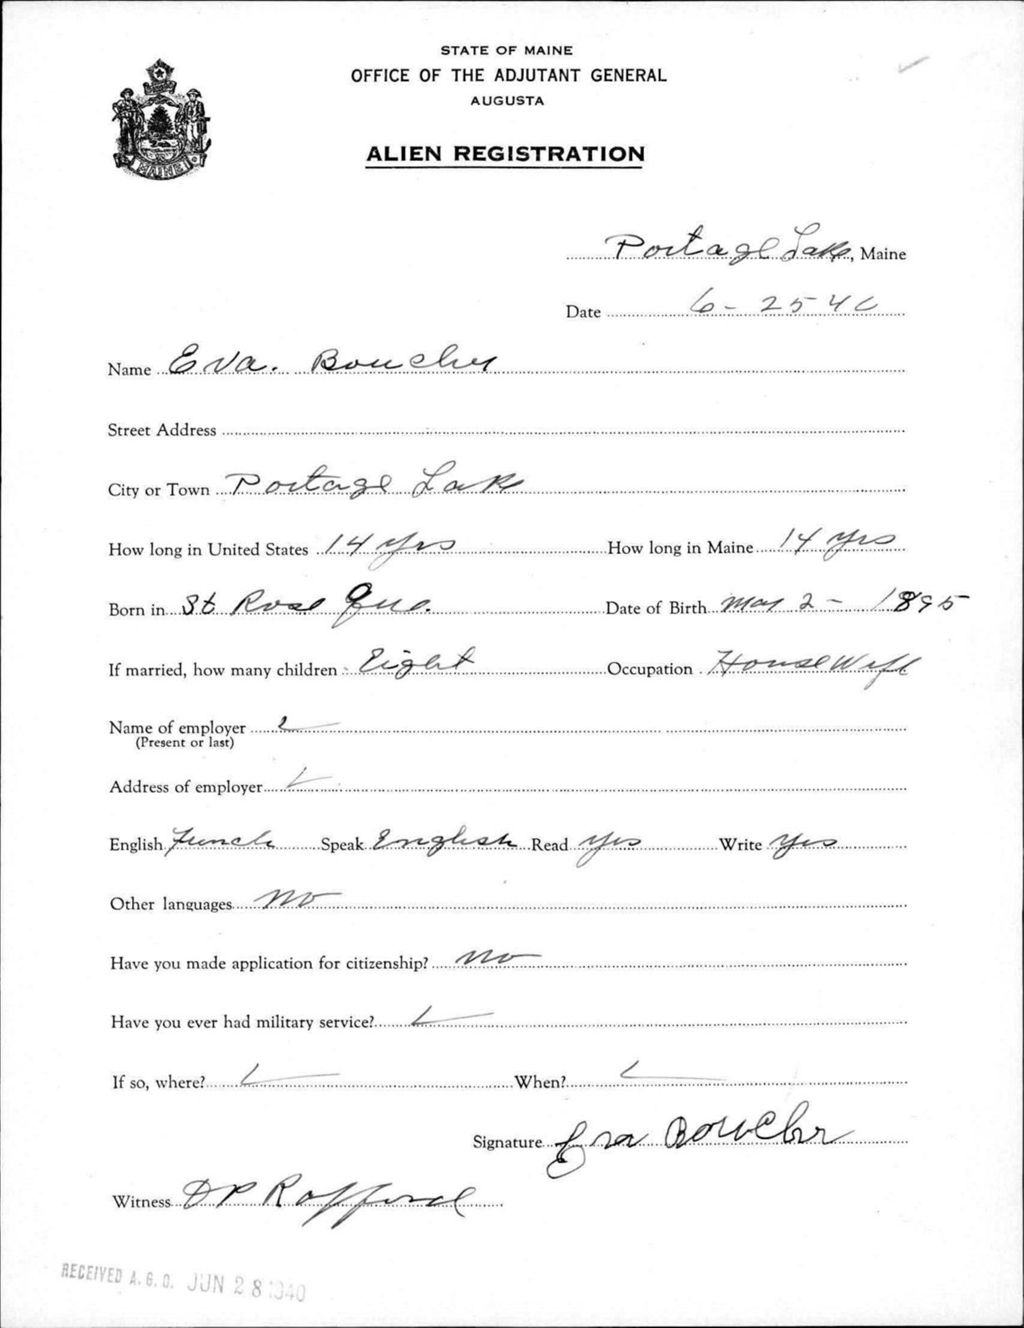 STATE OF MAINE
OFFICE OF THE ADJUTANT GENERAL
AUGUSTA
ALIEN REGISTRATION
MAINE
Portage Lake, Maine
Date 6-25-40
Name Eva. Boucher
Street Address
City or Town Portage Lake
How long in United States 14 yrs How long in Maine 14 yrs
Born in St Rose Que. Date of Birth May 2- 1895
If married, how many children Eight Occupation HouseWife
Name of employer
(Present or last)
Address of employer
English French Speak English Read Yes Write Yes
Other languages No
Have you made application for citizenship? No
Have you ever had military service?
If so, where? When?
Signature Eva Boucher
Witness D P Rafford
RECEIVED A.G.O. JUN 28 1940